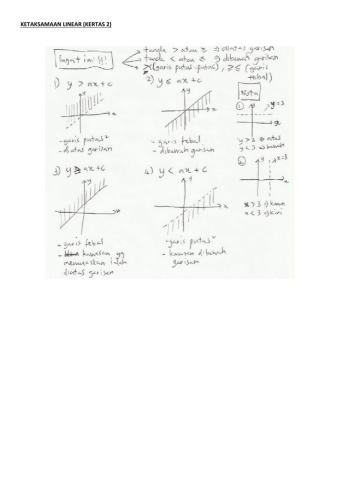 KETAKSAMAAN LINEAR (KERTAS 2)
Ingat ini!!!
tanda > atau ≥ ⇒ diatas garisan
tanda < atau ≤ ⇒ dibawah garisan
> < (garis putus-putus), ≥ ≤ (garis tebal)
1) y > ax + c
- garis putus²
- diatas garisan
2) y ≤ ax + c
- garis tebal
- dibawah garisan
Nota
1. y = 3
y > 3 ⇒ atas
y < 3 ⇒ bawah
3) y ≥ ax + c
- garis tebal
- kawasan yg
memuaskan ialah
diatas garisan
4) y < ax + c
- garis putus²
- kawasan dibawah
garisan
2. x = 3
x > 3 ⇒ kanan
x < 3 ⇒ kiri